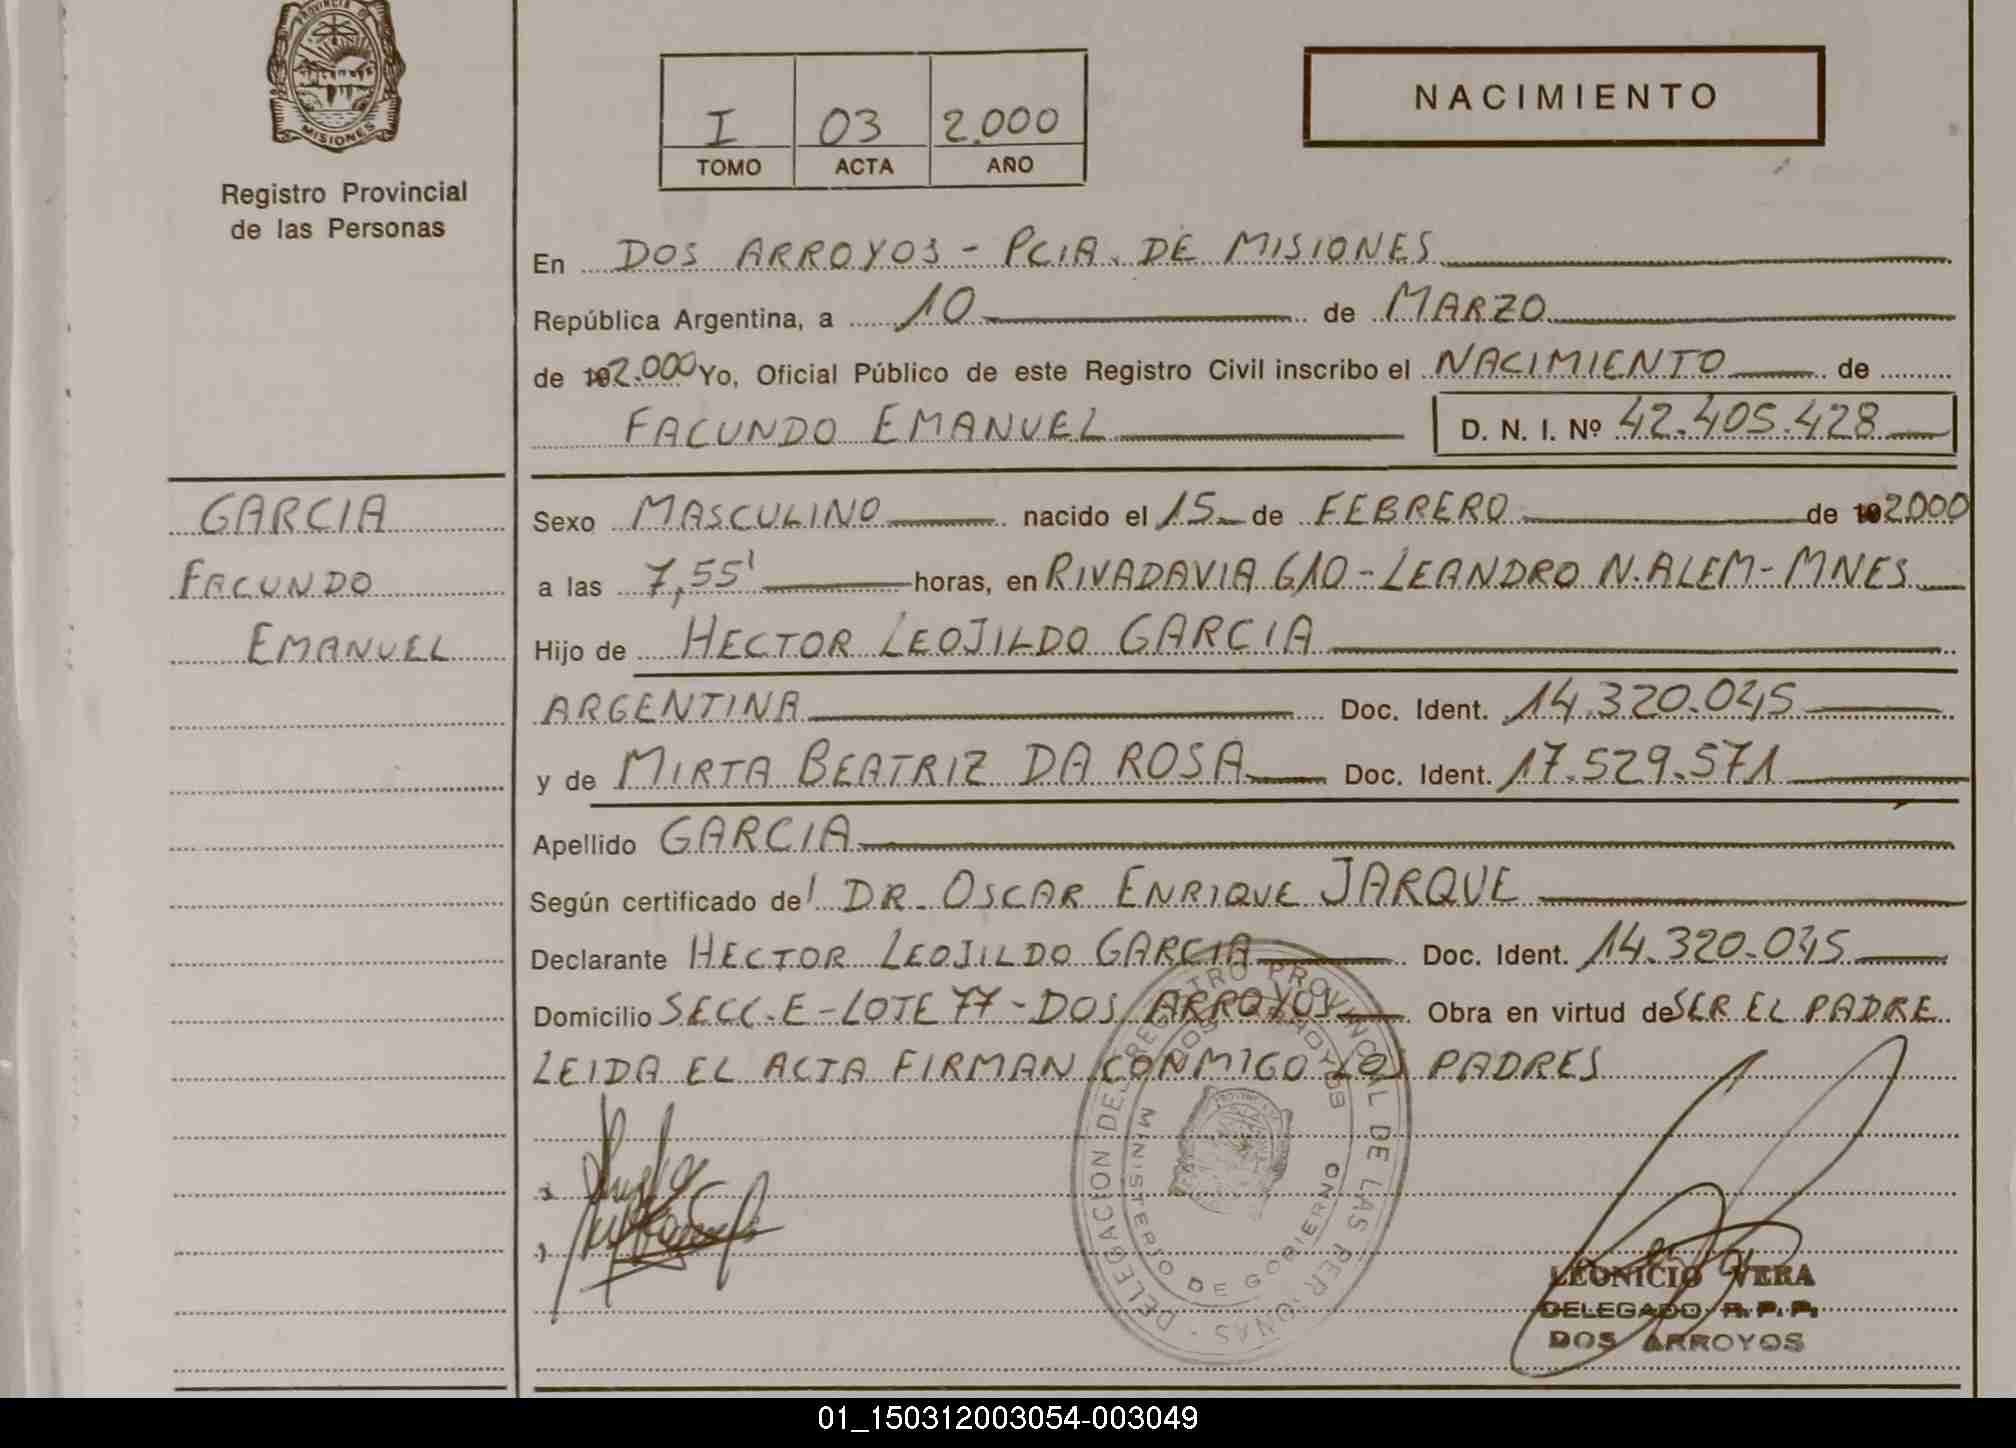 PROVINCIA DE
MISIONES
Registro Provincial
de las Personas
I 03 2.000
TOMO ACTA AÑO
NACIMIENTO
En DOS ARROYOS - PCIA. DE MISIONES
República Argentina, a 10 de MARZO
de 192.000 Yo, Oficial Público de este Registro Civil inscribo el NACIMIENTO de
FACUNDO EMANUEL D. N. I. Nº 42.405.428
GARCIA
FACUNDO
EMANUEL
Sexo MASCULINO nacido el 15 de FEBRERO de 192000
a las 7,55' horas, en RIVADAVIA 610 - LEANDRO N. ALEM - MNES
Hijo de HECTOR LEOJILDO GARCIA
ARGENTINA Doc. Ident. 14.320.045
y de MIRTA BEATRIZ DA ROSA Doc. Ident. 17.529.571
Apellido GARCIA
Según certificado del DR. OSCAR ENRIQUE JARQUE
Declarante HECTOR LEOJILDO GARCIA Doc. Ident. 14.320.045
Domicilio SECC. E - LOTE 77 - DOS ARROYOS Obra en virtud de SER EL PADRE
LEIDA EL ACTA FIRMAN CONMIGO LOS PADRES
DELEGACION DEL REGISTRO PROVINCIAL DE LAS PERSONAS
DOS ARROYOS
MINISTERIO DE GOBIERNO
LEONICIO VERA
DELEGADO R. P. P.
DOS ARROYOS
01_150312003054-003049